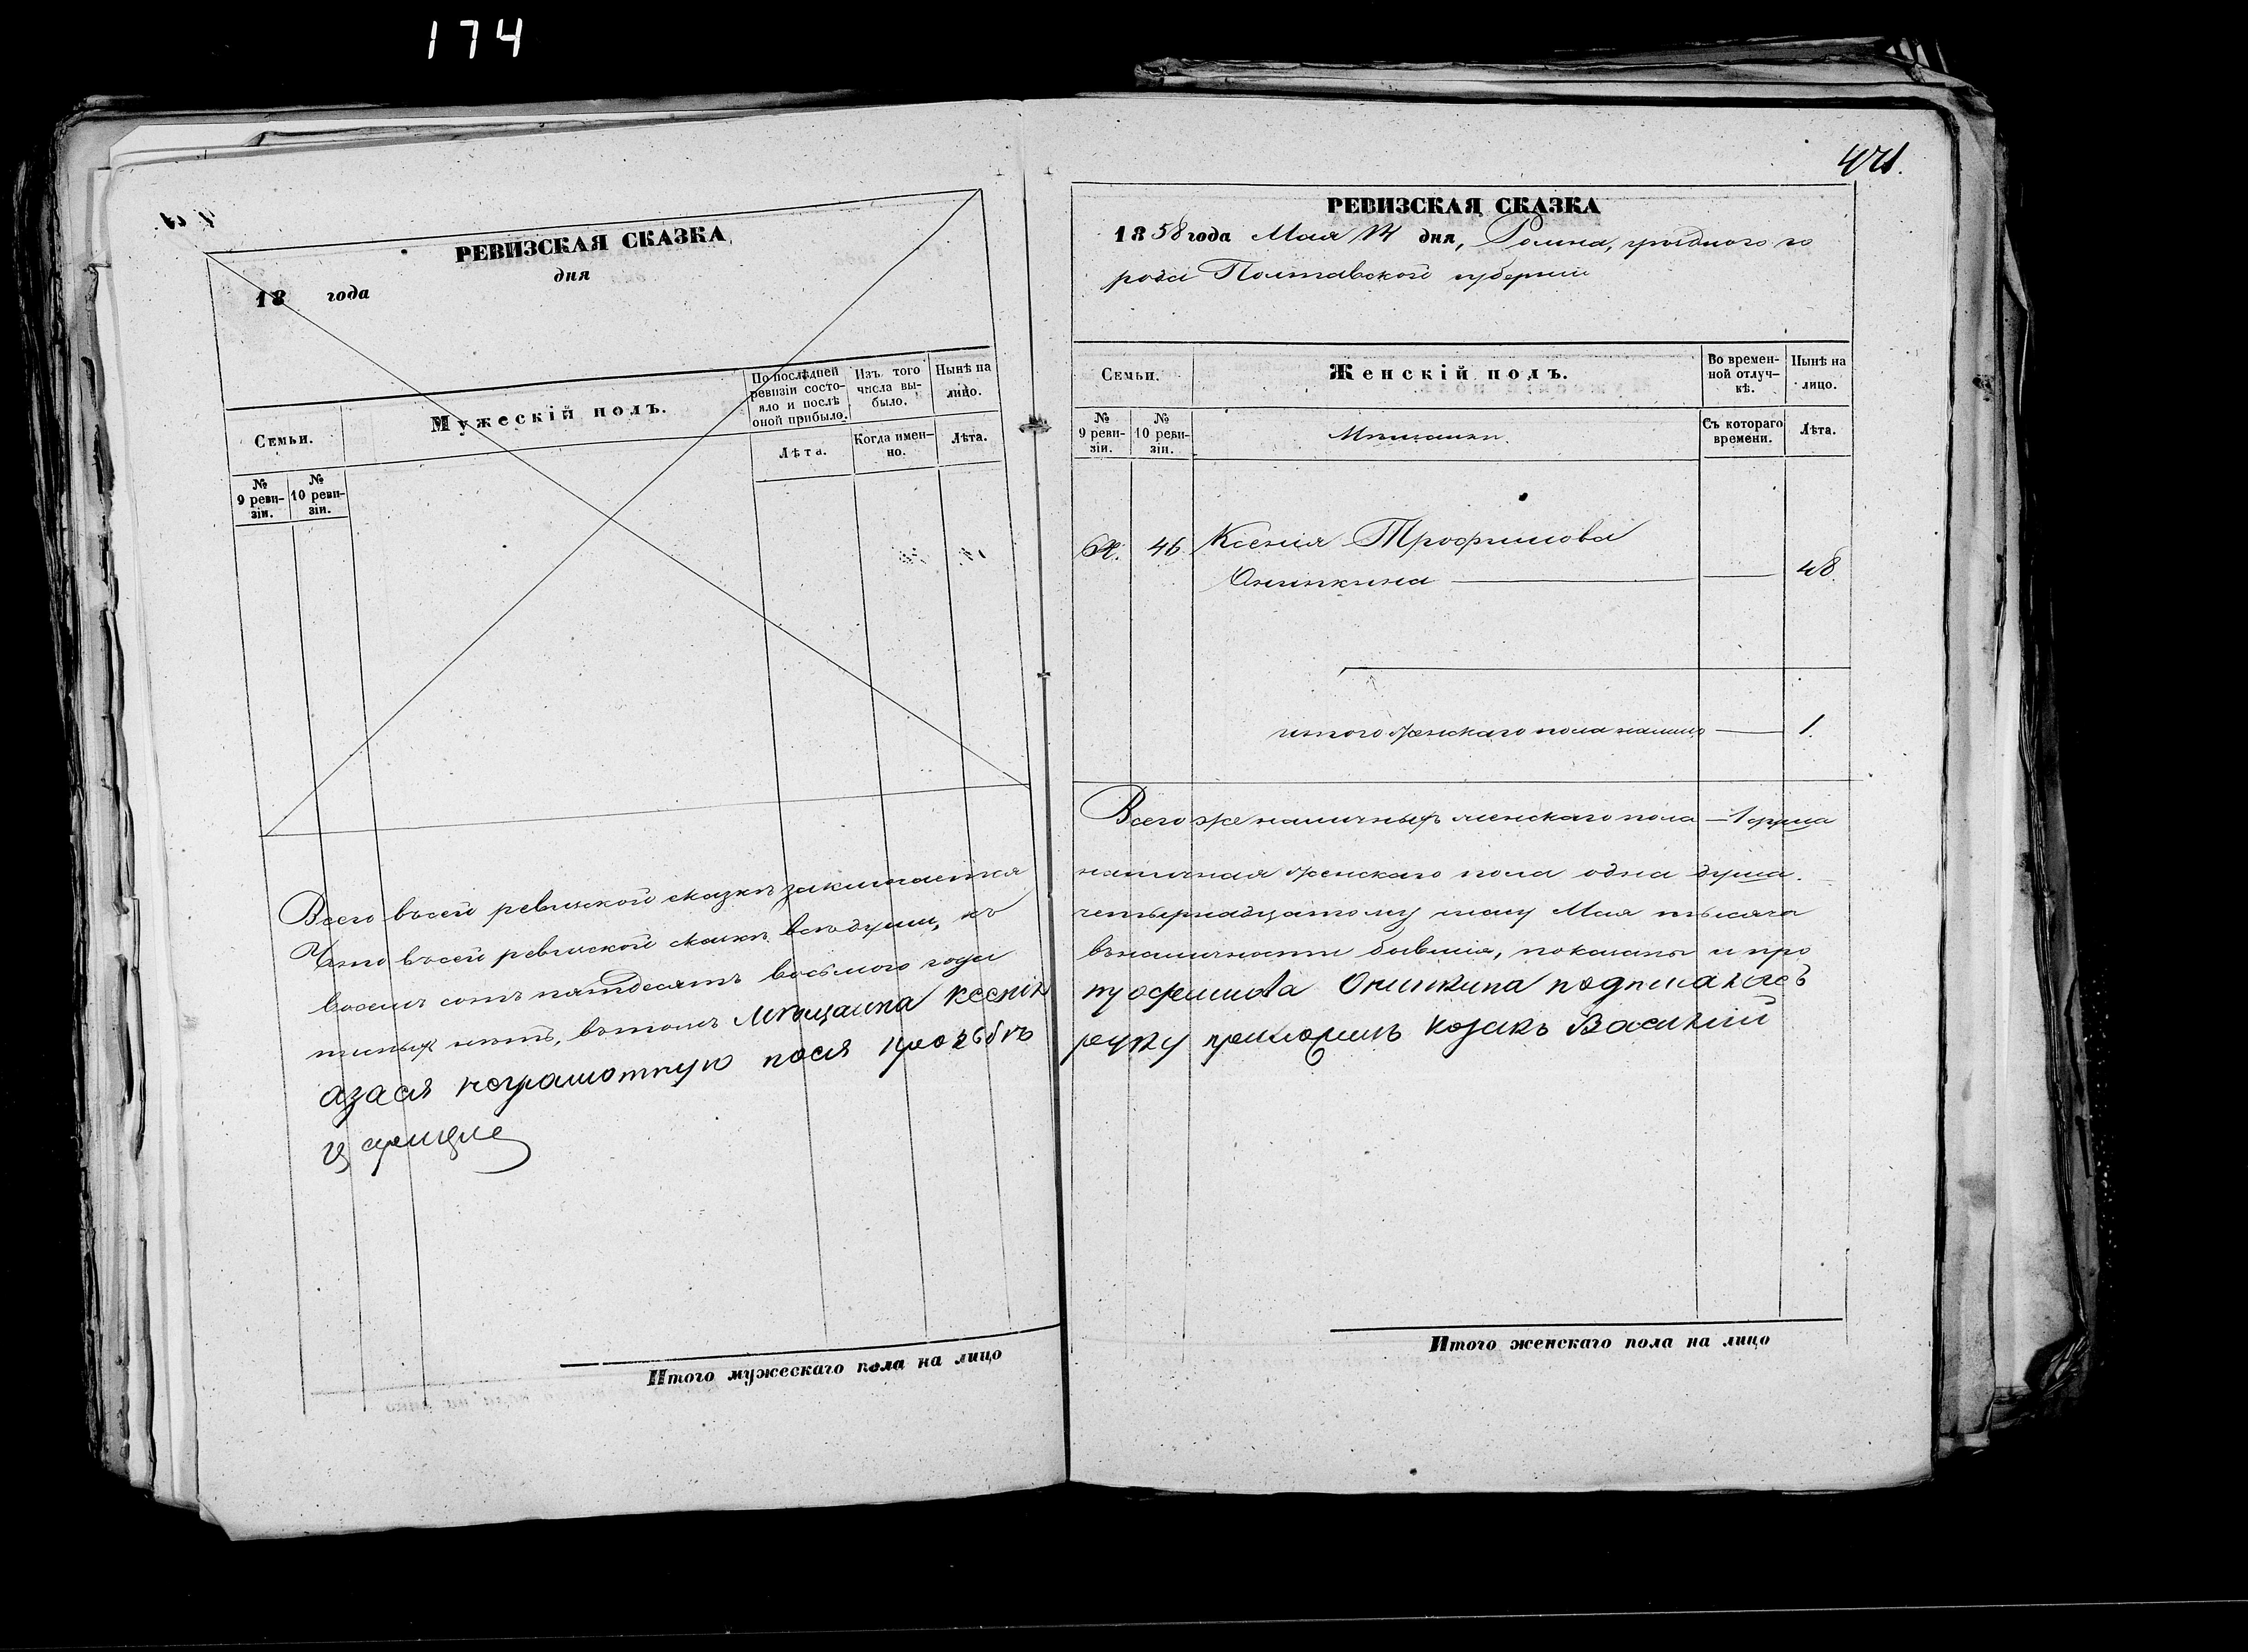 174
РЕВИЗСКАЯ СКАЗКА
18 года дня
Семьи.
Мужескій полъ.
По послѣдней ревизіи состояло и послѣ оной прибыло.
Изъ того числа выбыло.
Нынѣ на лицо.
№ 9 ревизіи.
№ 10 ревизіи.
Лѣта.
Когда именно.
Лѣта.
Всего въ сей ревизской сказкѣ заключается
Что въ сей ревизской сказкѣ всѣ души, къ
восемь сотъ пятдесятъ восьмого года
нѣтъ, въ томъ мѣщанка Ксенія
неграмотную прозьбѣ
Итого мужескаго пола на лицо
471.
РЕВИЗСКАЯ СКАЗКА
1858 года Мая 14 дня, Ромна, уѣзднаго го
рода Полтавской губерніи
Семьи.
Женскій полъ.
Во временной отлучкѣ.
Нынѣ на лицо.
№ 9 ревизіи.
№ 10 ревизіи.
Мѣщанки.
Съ котораго времени.
Лѣта.
46. Ксенія Трофимова
Онипкина — — 48.
итого женскаго пола налицо — 1.
Всего же наличныхъ женскаго пола — 1 душа
наличная женскаго пола одна душа.
четырнадцатому числу Мая тысяча
въ наличности бывшія, показаны и про
трофимова Онипкина подписалась
руку приложилъ козакъ Василий
Итого женскаго пола на лицо